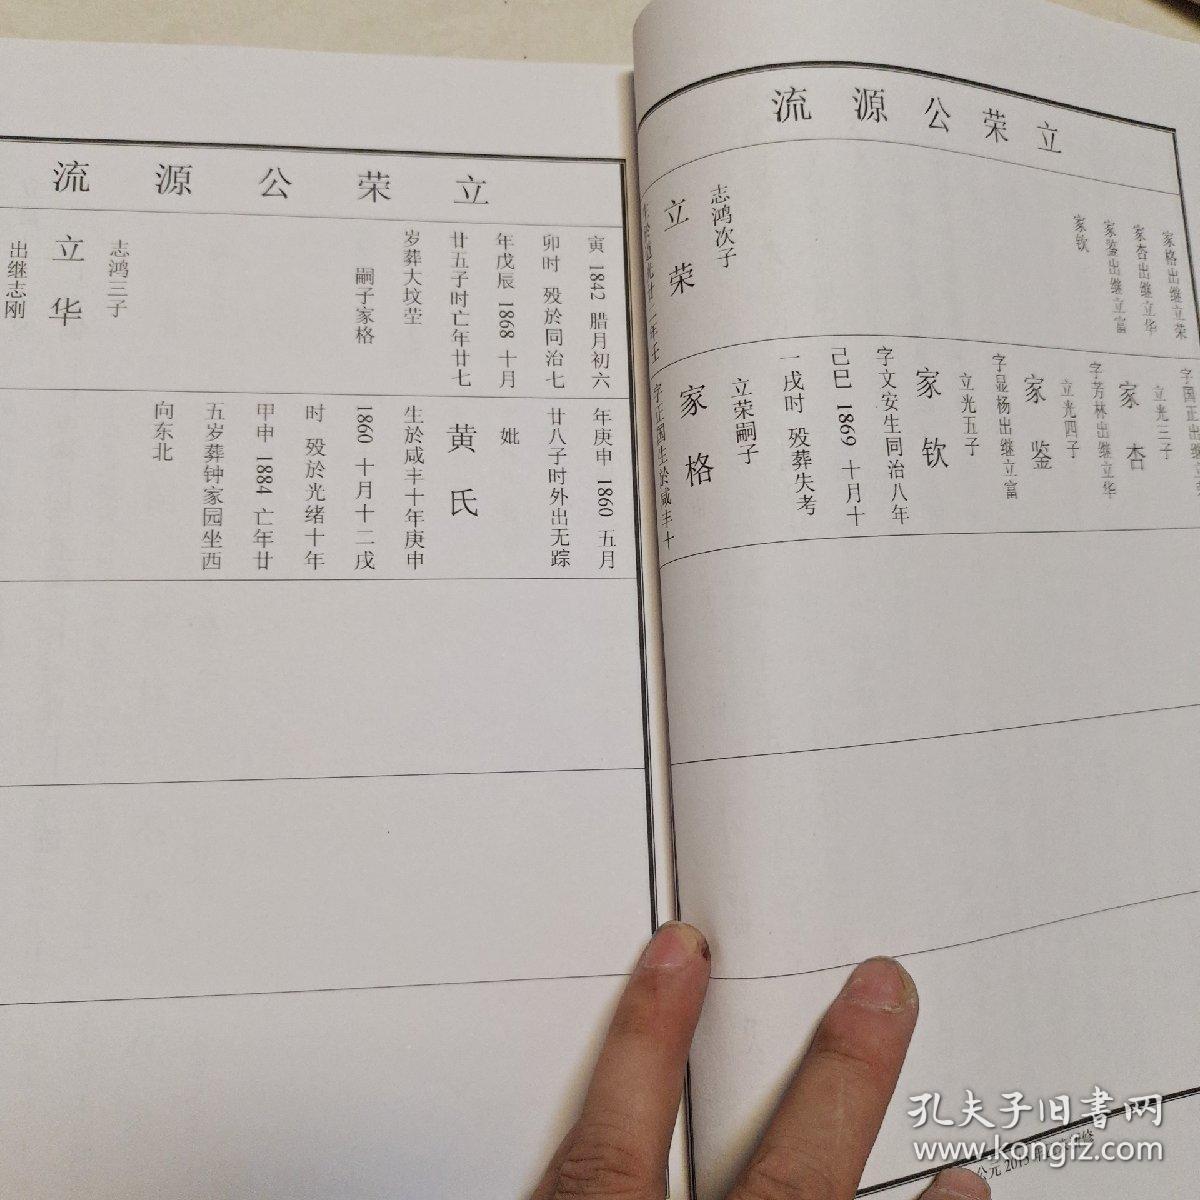 立荣公源流
家格出继立荣
家杏出继立华
家鉴出继立富
家钦
志鸿次子
立荣
字国正出继立
立光三子
家杏
字芳林出继立华
立光四子
家鉴
字显杨出继立富
立光五子
家钦
字文安生同治八年
己巳 1869 十月十
一戌时 殁葬失考
立荣嗣子
家格
字正国生於咸丰十
立荣公源流
寅 1842 腊月初六
卯时 殁於同治七
年戊辰 1868 十月
廿五子时亡年廿七
岁葬大坟茔
嗣子家格
志鸿三子
立华
出继志刚
年庚申 1860 五月
廿八子时外出无踪
妣
黄氏
生於咸丰十年庚申
1860 十月十二戌
时 殁於光绪十年
甲申 1884 亡年廿
五岁葬钟家园坐西
向东北
孔夫子旧书网
www.kongfz.com